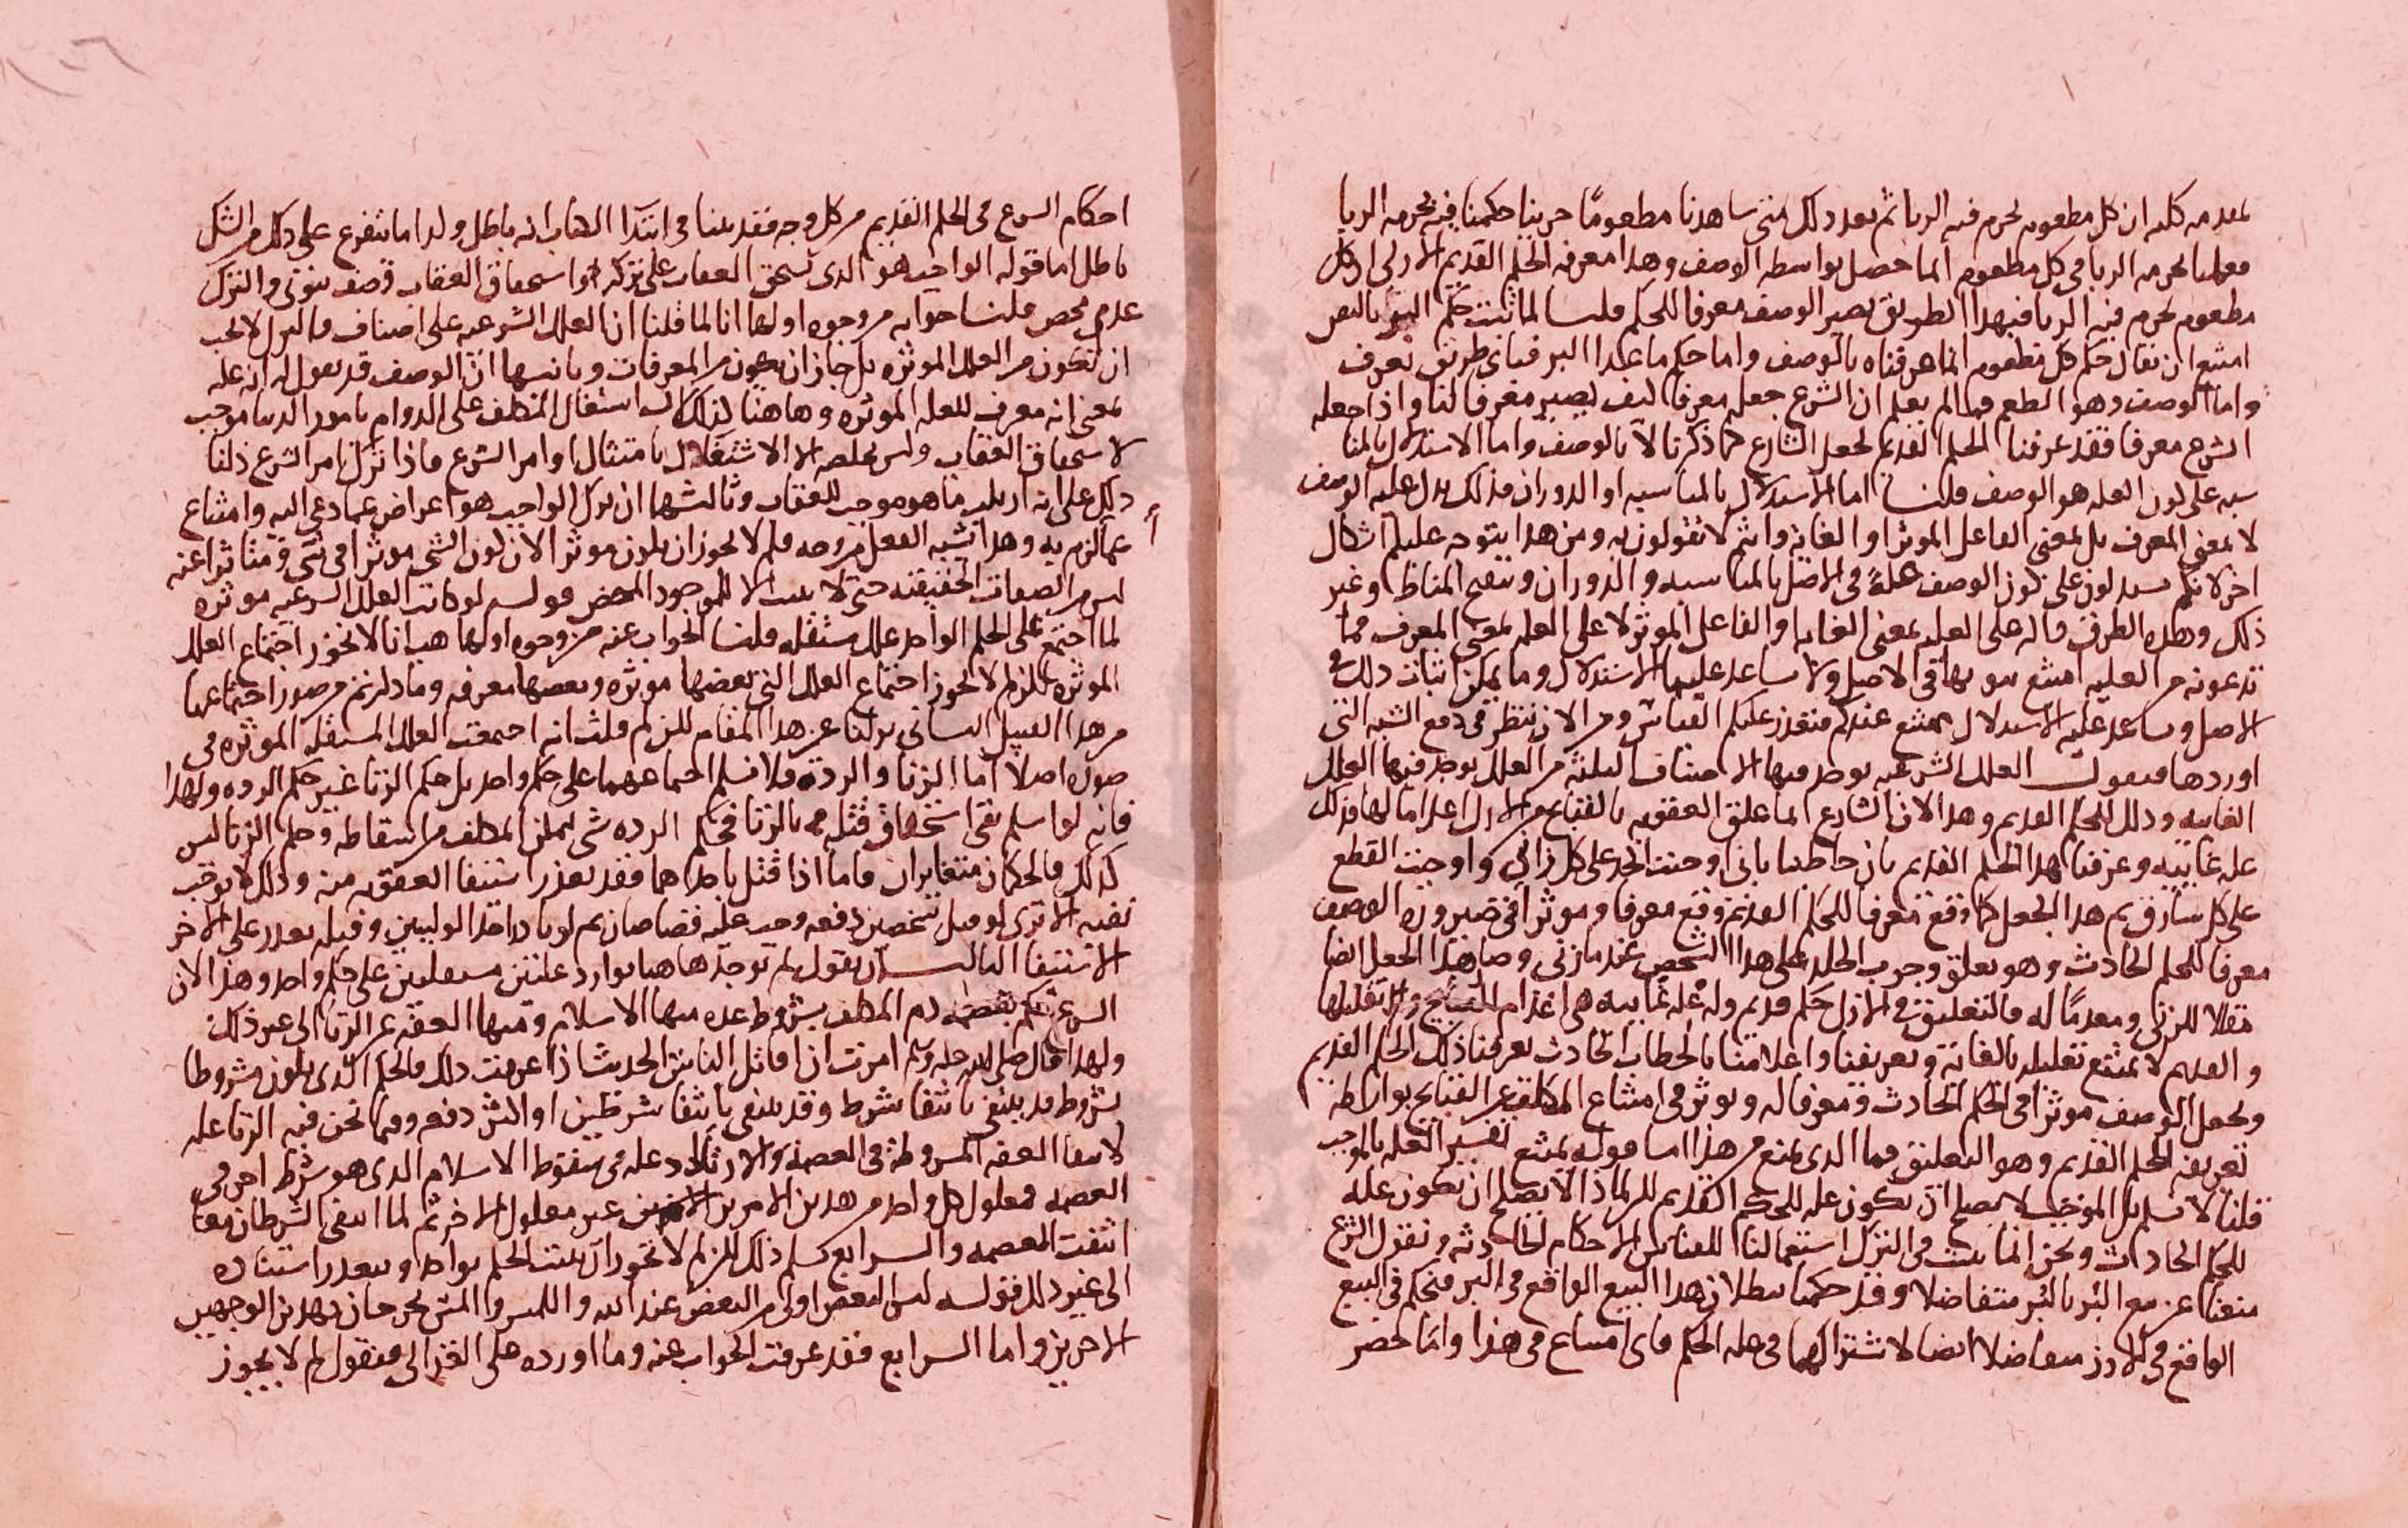 مقدمه كليه ان كل مطعوم يحرم فيه الربا ثم بعد ذلك متى شاهدنا مطعومًا حربنا حكمنا فيه بحرمه الربا
فعلمنا بحرمه الربا في كل مطعوم انما حصل بواسطه الوصف وهذا معرفه الحكم القديم الازلي اذ كل
مطعوم يحرم فيه الربا فبهذا الطريق يصير الوصف معرفا للحكم قلنا لما ثبت حكم البر بالنص
امتنع ان يقال حكم كل مطعوم انما عرفناه بالوصف واما حكم ما عدا البر فباى طريق نعرف
واما الوصف وهو الطعم فما لم يعلم ان الشرع جعله معرفا كيف يصير معرفا لنا واذا جعله
الشرع معرفا فقد عرفنا الحكم القديم بجعل الشارع كما ذكرنا لا بالوصف واما الاستدلال بالمنا
سبه على كون العله هو الوصف قلنا اما الاستدلال بالمناسبه او الدوران فذلك يدل على عليه الوصف
لا بمعنى المعرف بل بمعنى الفاعل الموثر او الغايه وانتم لا تقولون به ومن هذا يتوجه عليكم اشكال
اخر لانكم تستدلون على كون الوصف علةً في الاصل بالمناسبه والدوران وتنقيح المناط وغير
ذلك وهذه الطرق داله على العله بمعنى الغايه او الفاعل الموثر لا على العله بمعنى المعرف فما
تدعونه من العليه امتنع ثبوتها في الاصل ولا يساعد عليها الاستدلال وما يمكن اثبات ذلك في
الاصل ويساعد عليه الاستدلال يمتنع عندكم فتعذر عليكم القياس ومن الان ننظر في دفع الشبه التى
اوردها فنقول العلل الشرعيه يوجد فيها الاصناف الثلثه من العلل يوجد فيها العلل
الغاييه وذلك للحكم القديم وهذا لان الشارع انما علق العقوبه بالقبايح في الازل اعداما لها فذلك
عله غاييه وعرفنا بهذا الحكم القديم بان خاطبنا بانى اوجبت الحد على كل زاني واوجبت القطع
على كل سارق ثم هذا الجعل كما وقع معرفا للحكم القديم وقع معرفا وموثرا في صيروره الوصف
معرفا للحكم الحادث وهو تعلق وجوب الجلد على هذا الشخص عند ما زنى وصار هذا الجعل ايضا
مقللا للزنى ومعدمًا له فالتعليق في الازل حكم قديم وله عله غاييه هي اعدام القبايح والا تقليلها
والقديم لا يمتنع تعليله بالغاية وتعريفنا واعلامنا بالخطاب الحادث يعرفنا ذلك الحكم القديم
ويجعل الوصف موثرا في الحكم الحادث ومعرفا له ويوثر في امتناع المكلف عن القبايح بواسطه
تعريف الحكم القديم وهو التعليق فما الذى يمنع من هذا اما قوله يمتنع تفسير العله بالموجب
قلنا لا نسلم بل الموجب لا يصلح ان يكون عله للحكم القديم لكن لماذا لا يصلح ان يكون عله
للحكم الحادث ونحن انما نثبت في التنزل استعمالنا للقياس الاحكام الحادثه ونقول الشرع
منعنا عن بيع البر بالبر متفاضلا وقد حكمنا ببطلان هذا البيع الواقع في البر فنحكم في البيع
الواقع في الارز متفاضلا ايضا لاشتراكهما في عله الحكم فاى امتناع في هذا واما حصر
احكام الشرع في الحكم القديم من كل وجه فقد بينا في ابتدا الكتاب انه باطل ولذا ما يتفرع على ذلك من الشك
باطل اما قوله الواجب هو الذى يستحق العقاب على تركه واستحقاق العقاب وصف ثبوتي والترك
عدمي محض قلنا جوابه من وجوه اولها انا لما قلنا ان العلل الشرعيه على اصناف فالترك لا يجب
ان يكون من العلل الموثره بل جاز ان يكون من المعرفات وثانيها ان الوصف قد يقول له انه عله
بمعنى انه معرف للعله الموثره وهاهنا كذلك لان اشتغال المكلف على الدوام بامور الدنيا موجب
لاستحقاق العقاب وليس يخلصه الا الاشتغال بامتثال اوامر الشرع فاذا ترك امر الشرع دلنا
ذلك على انه ارتكب ما هو موجب للعقاب وثالثها ان ترك الواجب هو اعراض عما دعي اليه وامتناع
عما لزم به وهذا يشبه الفعل من وجه فلم لا يجوز ان يكون موثرا لان كون الشى موثرا في شى ومتاثرا عنه
ليس من الصفات الحقيقيه حتى لا يثبت الا للموجود المحض قوله لو كانت العلل الشرعيه موثره
لما اجتمع على الحكم الواحد علل مستقله قلنا الجواب عنه من وجوه اولها هب انا لا نجوز اجتماع العلل
الموثره لكن لم لا يجوز اجتماع العلل التى بعضها موثره وبعضها معرفه وما ذكرتم من صور اجتماعها
من هذا القبيل الثاني نزلنا عن هذا المقام لكن لم قلت انه اجتمعت العلل المستقله الموثره في
صوره اصلا اما الزنا والردة فلا نسلم اجتماعهما على حكم واحد بل حكم الزنا غير حكم الرده ولهذا
فانه لو اسلم بقى استحقاق قتله بالزنا فحكم الرده شى يمكن المكلف من اسقاطه وحكم الزنا ليس
كذلك فالحكمان متغايران فاما اذا قتل باحداهما فقد تعذر استيفا العقوبه منه وذلك لا يوجب
نفيه الا ترى لو قتل شخصين دفعه وجب عليه قصاصان ثم لو بادر احد الوليين وقتله تعذر على الاخر
الاستيفا الثالث ان نقول لم توجد هاهنا توارد علتين مستقلتين على حكم واحد وهذا لان
الشرع حكم بعصمه دم المكلف بشروط عده منها الاسلام ومنها العفه عن الزنا الى غير ذلك
ولهذا قال صلى الله عليه وسلم امرت ان اقاتل الناس الحديث اذا عرفت ذلك فالحكم الذى يكون مشروطا
بشروط قد ينتفى بانتفا شرط وقد ينتفى بانتفا شرطين او اكثر دفعه وفيما نحن فيه الزنا عله
لانتفا العفه المشروطة في العصمه والارتداد عله في سقوط الاسلام الذى هو شرط اخر في
العصمه فمعلول كل واحد من هذين الامرين غير معلول الاخر ثم لما انتفى الشرطان معا
انتفت العصمه والرابع سلم ذلك لكن لم لا يجوز ان يثبت الحكم بواحد ويتعذر استناده
الى غير ذلك فقوله ليس البعض اولى من البعض عندالله واللمس والمس يخرجان بهذين الوجهين
الاخرين واما الرابع فقد عرفت الجواب عنه وما اورده على الغزالى فنقول لم لا يجوز